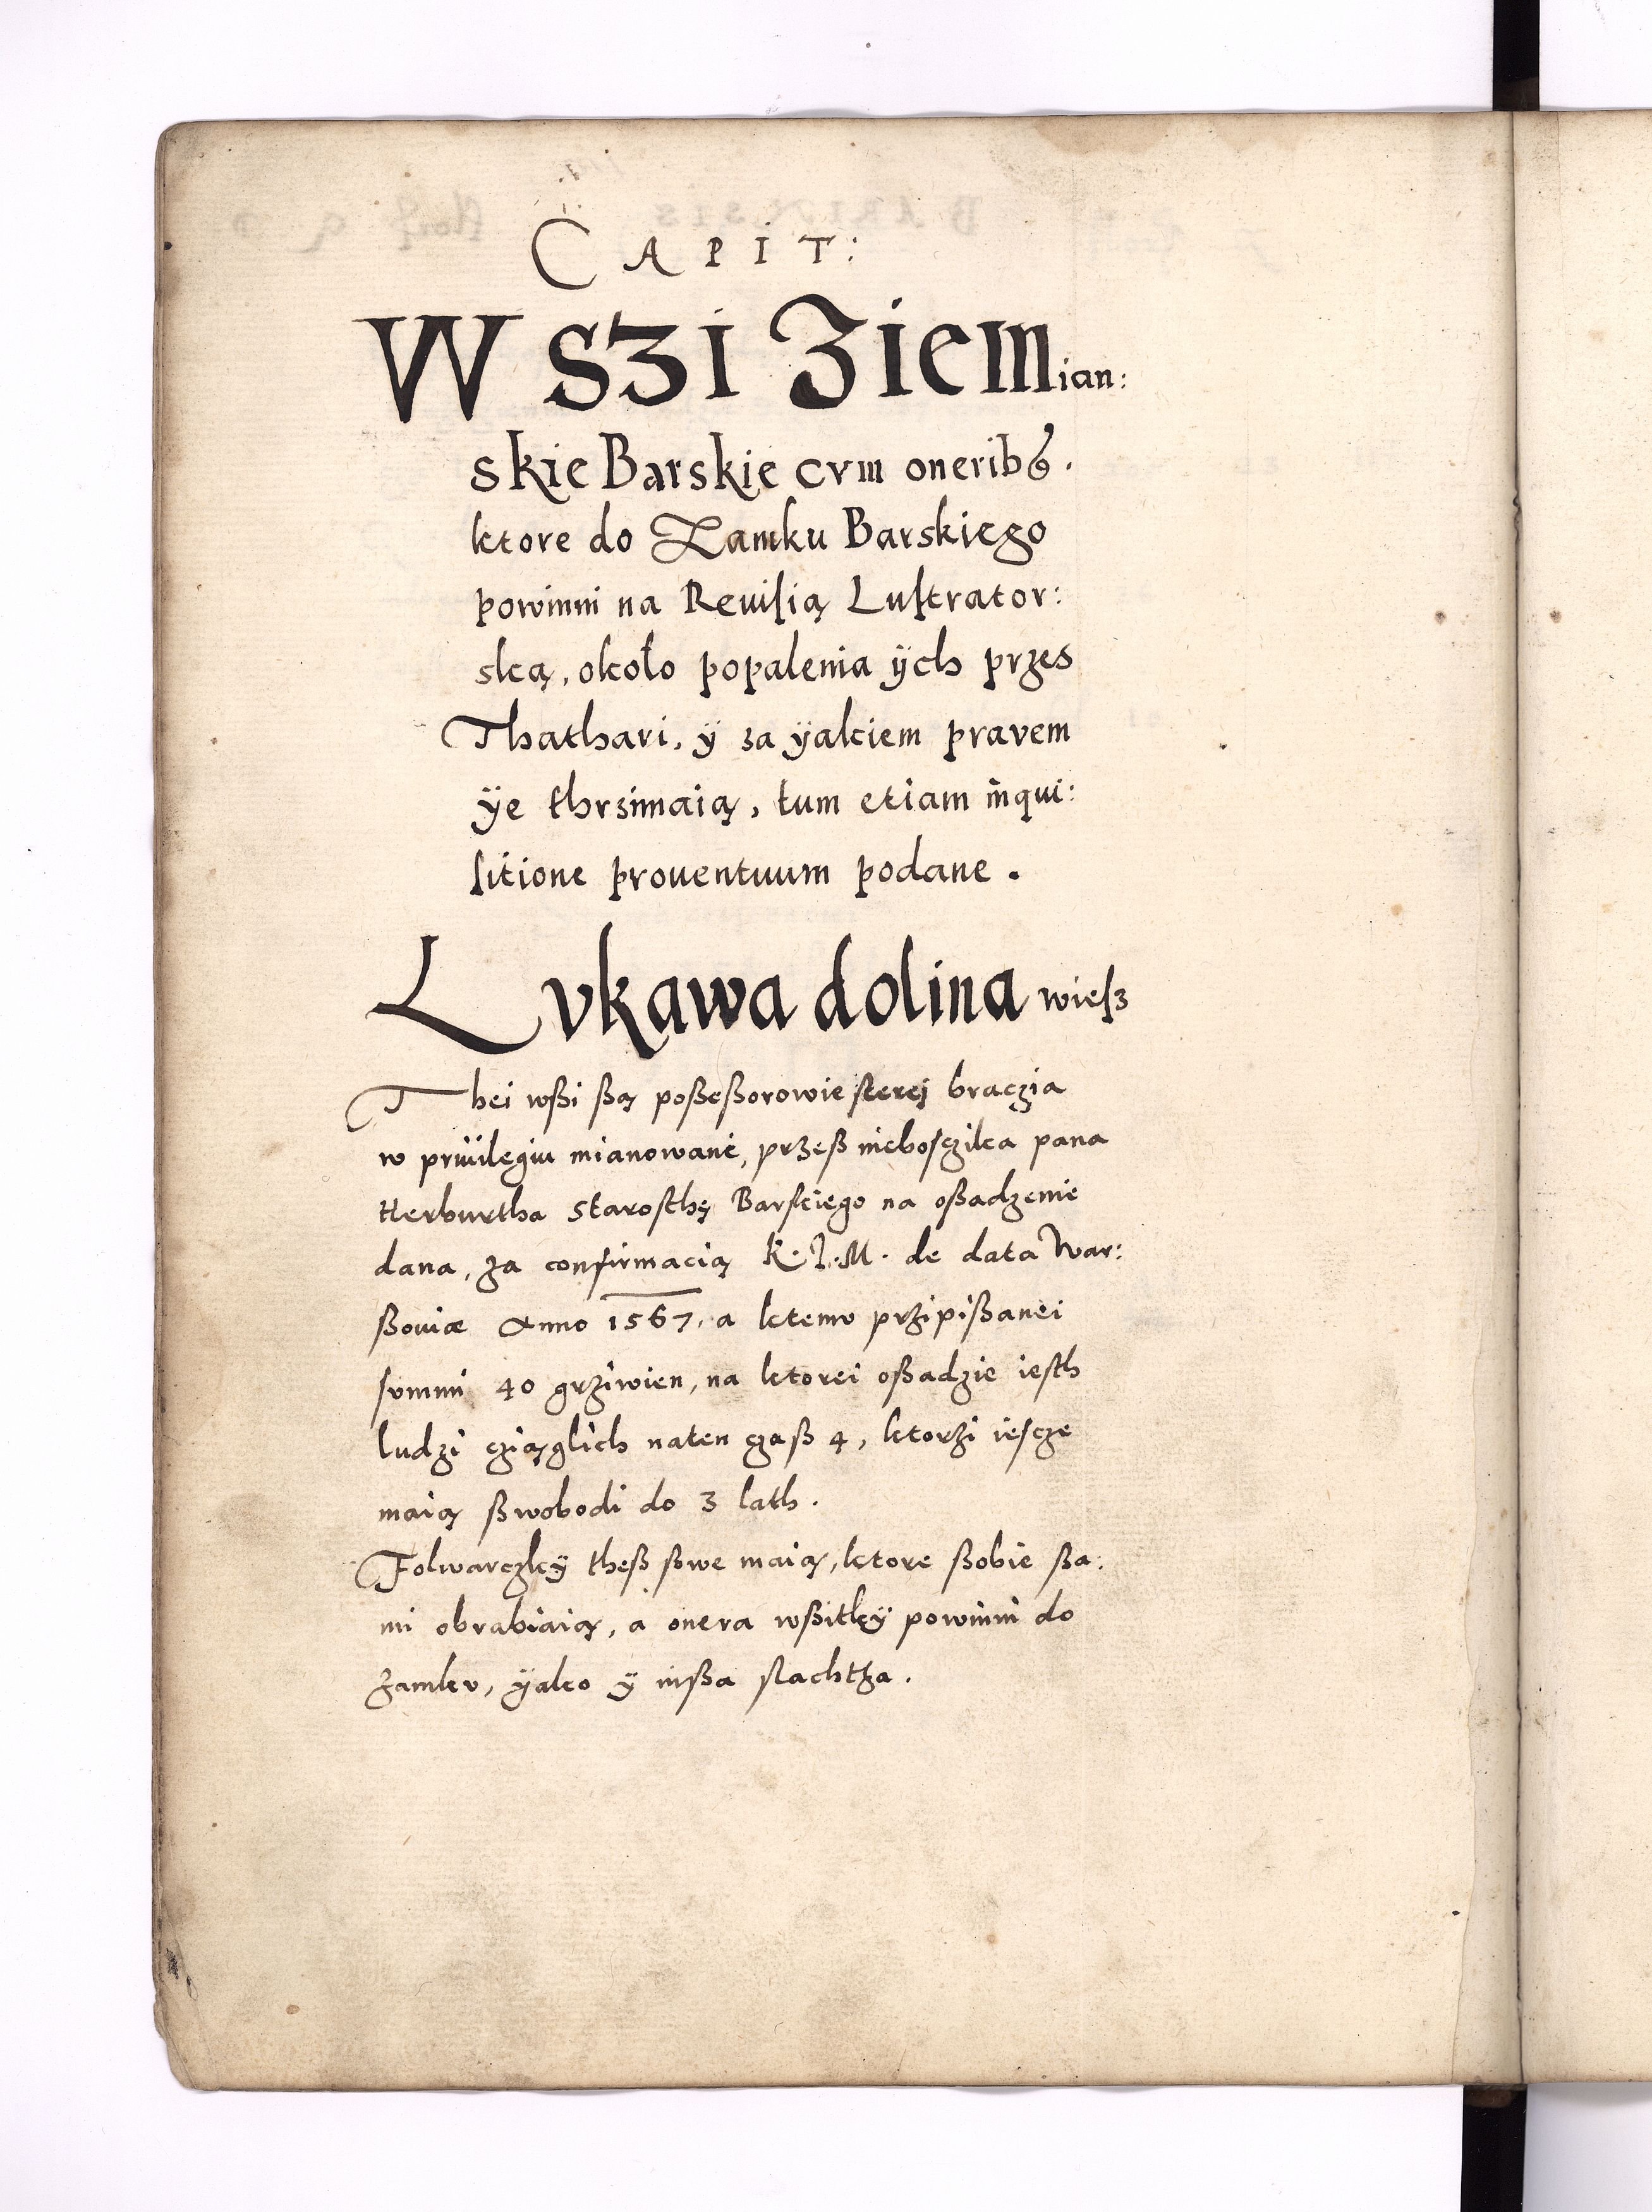 CAPIT:
WSZI Ziemian:
skie Barskie cvm oneribꝰ.
ktore do Zamku Barskiego
powinni na Reuiſią Luſtrator:
ską, około popalenia ÿch przes
Thathari, ÿ za ÿakiem pravem
ÿe thrzimaią, tum etiam inqui:
ſitione prouentuum podane.
Lvkawa dolina wieſz
Thei wßi ßą poßeßorowie ſterej braczia
w priuilegiu mianowani, przeß nieboſzczika pana
Herburtha Staroſthę Barſkiego na oßadzenie
dana, za confirmacią K. J. M. de data War:
ßouiæ Anno 1567, a ktemv przipißanei
ſvmmi 40 grziwien, na ktorei oßadzie ieſth
ludzi cziąglich naten czaß 4, ktorzi ieſcze
maią ßwobodi do 3 lath.
Folwarczkÿ theß ßwe maią, ktore ßobie ßa:
mi obrabiaią, a onera wßitkÿ powinni do
zamkv, ÿako ÿ inßa ſlachtza.